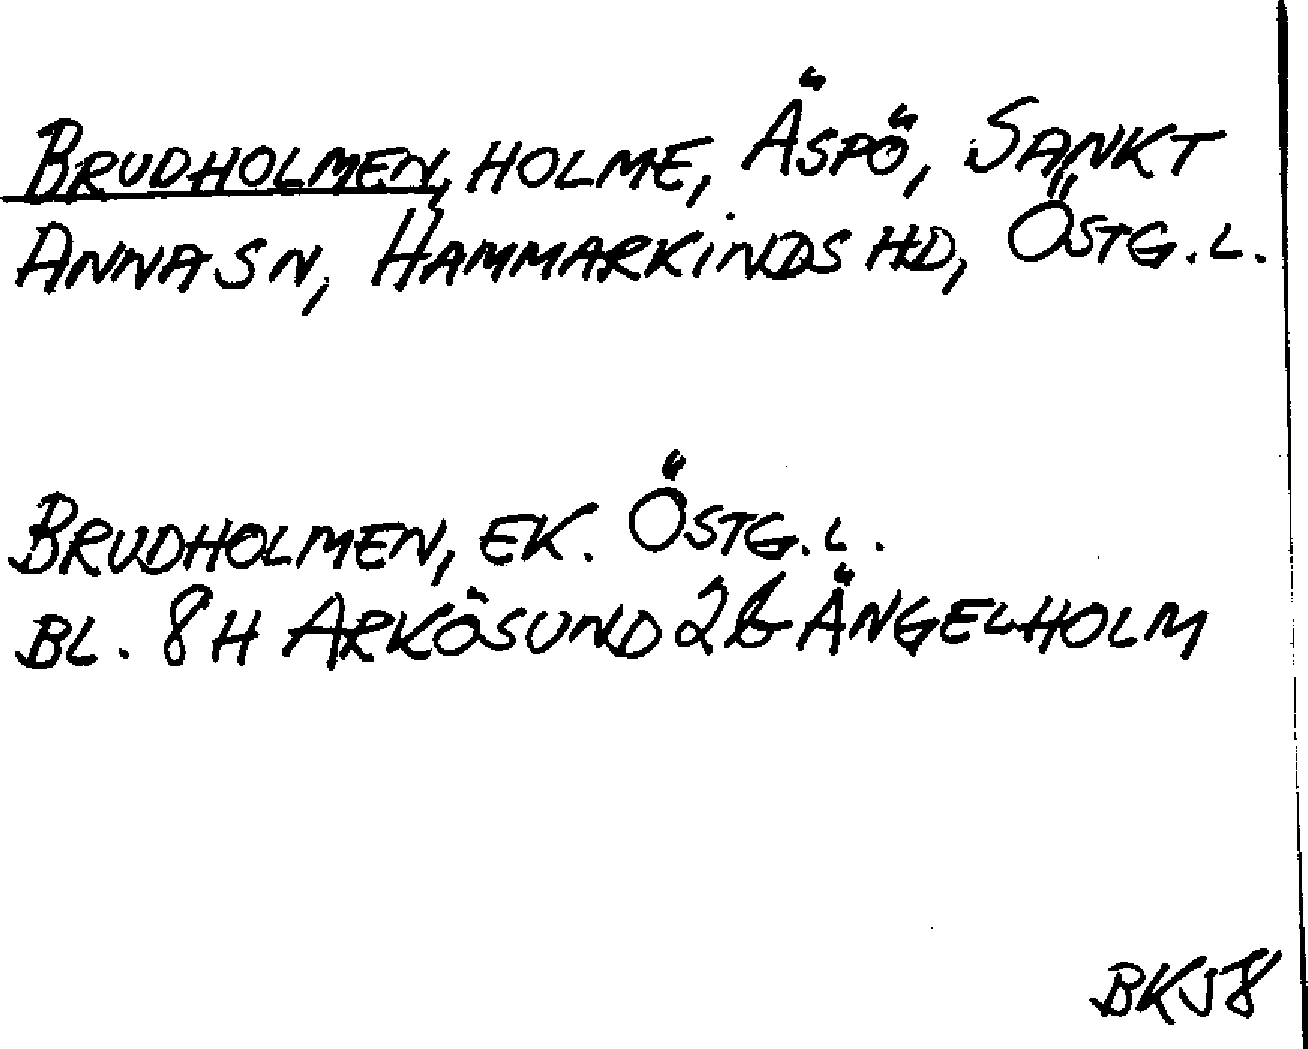 BRUDHOLMEN, HOLME, ÄSPÖ, SANKT
ANNA SN, HAMMARKINDS HD, ÖSTG.L.
BRUDHOLMEN, EK. ÖSTG.L.
BL. 8H ARKÖSUND 2b ÄNGELHOLM